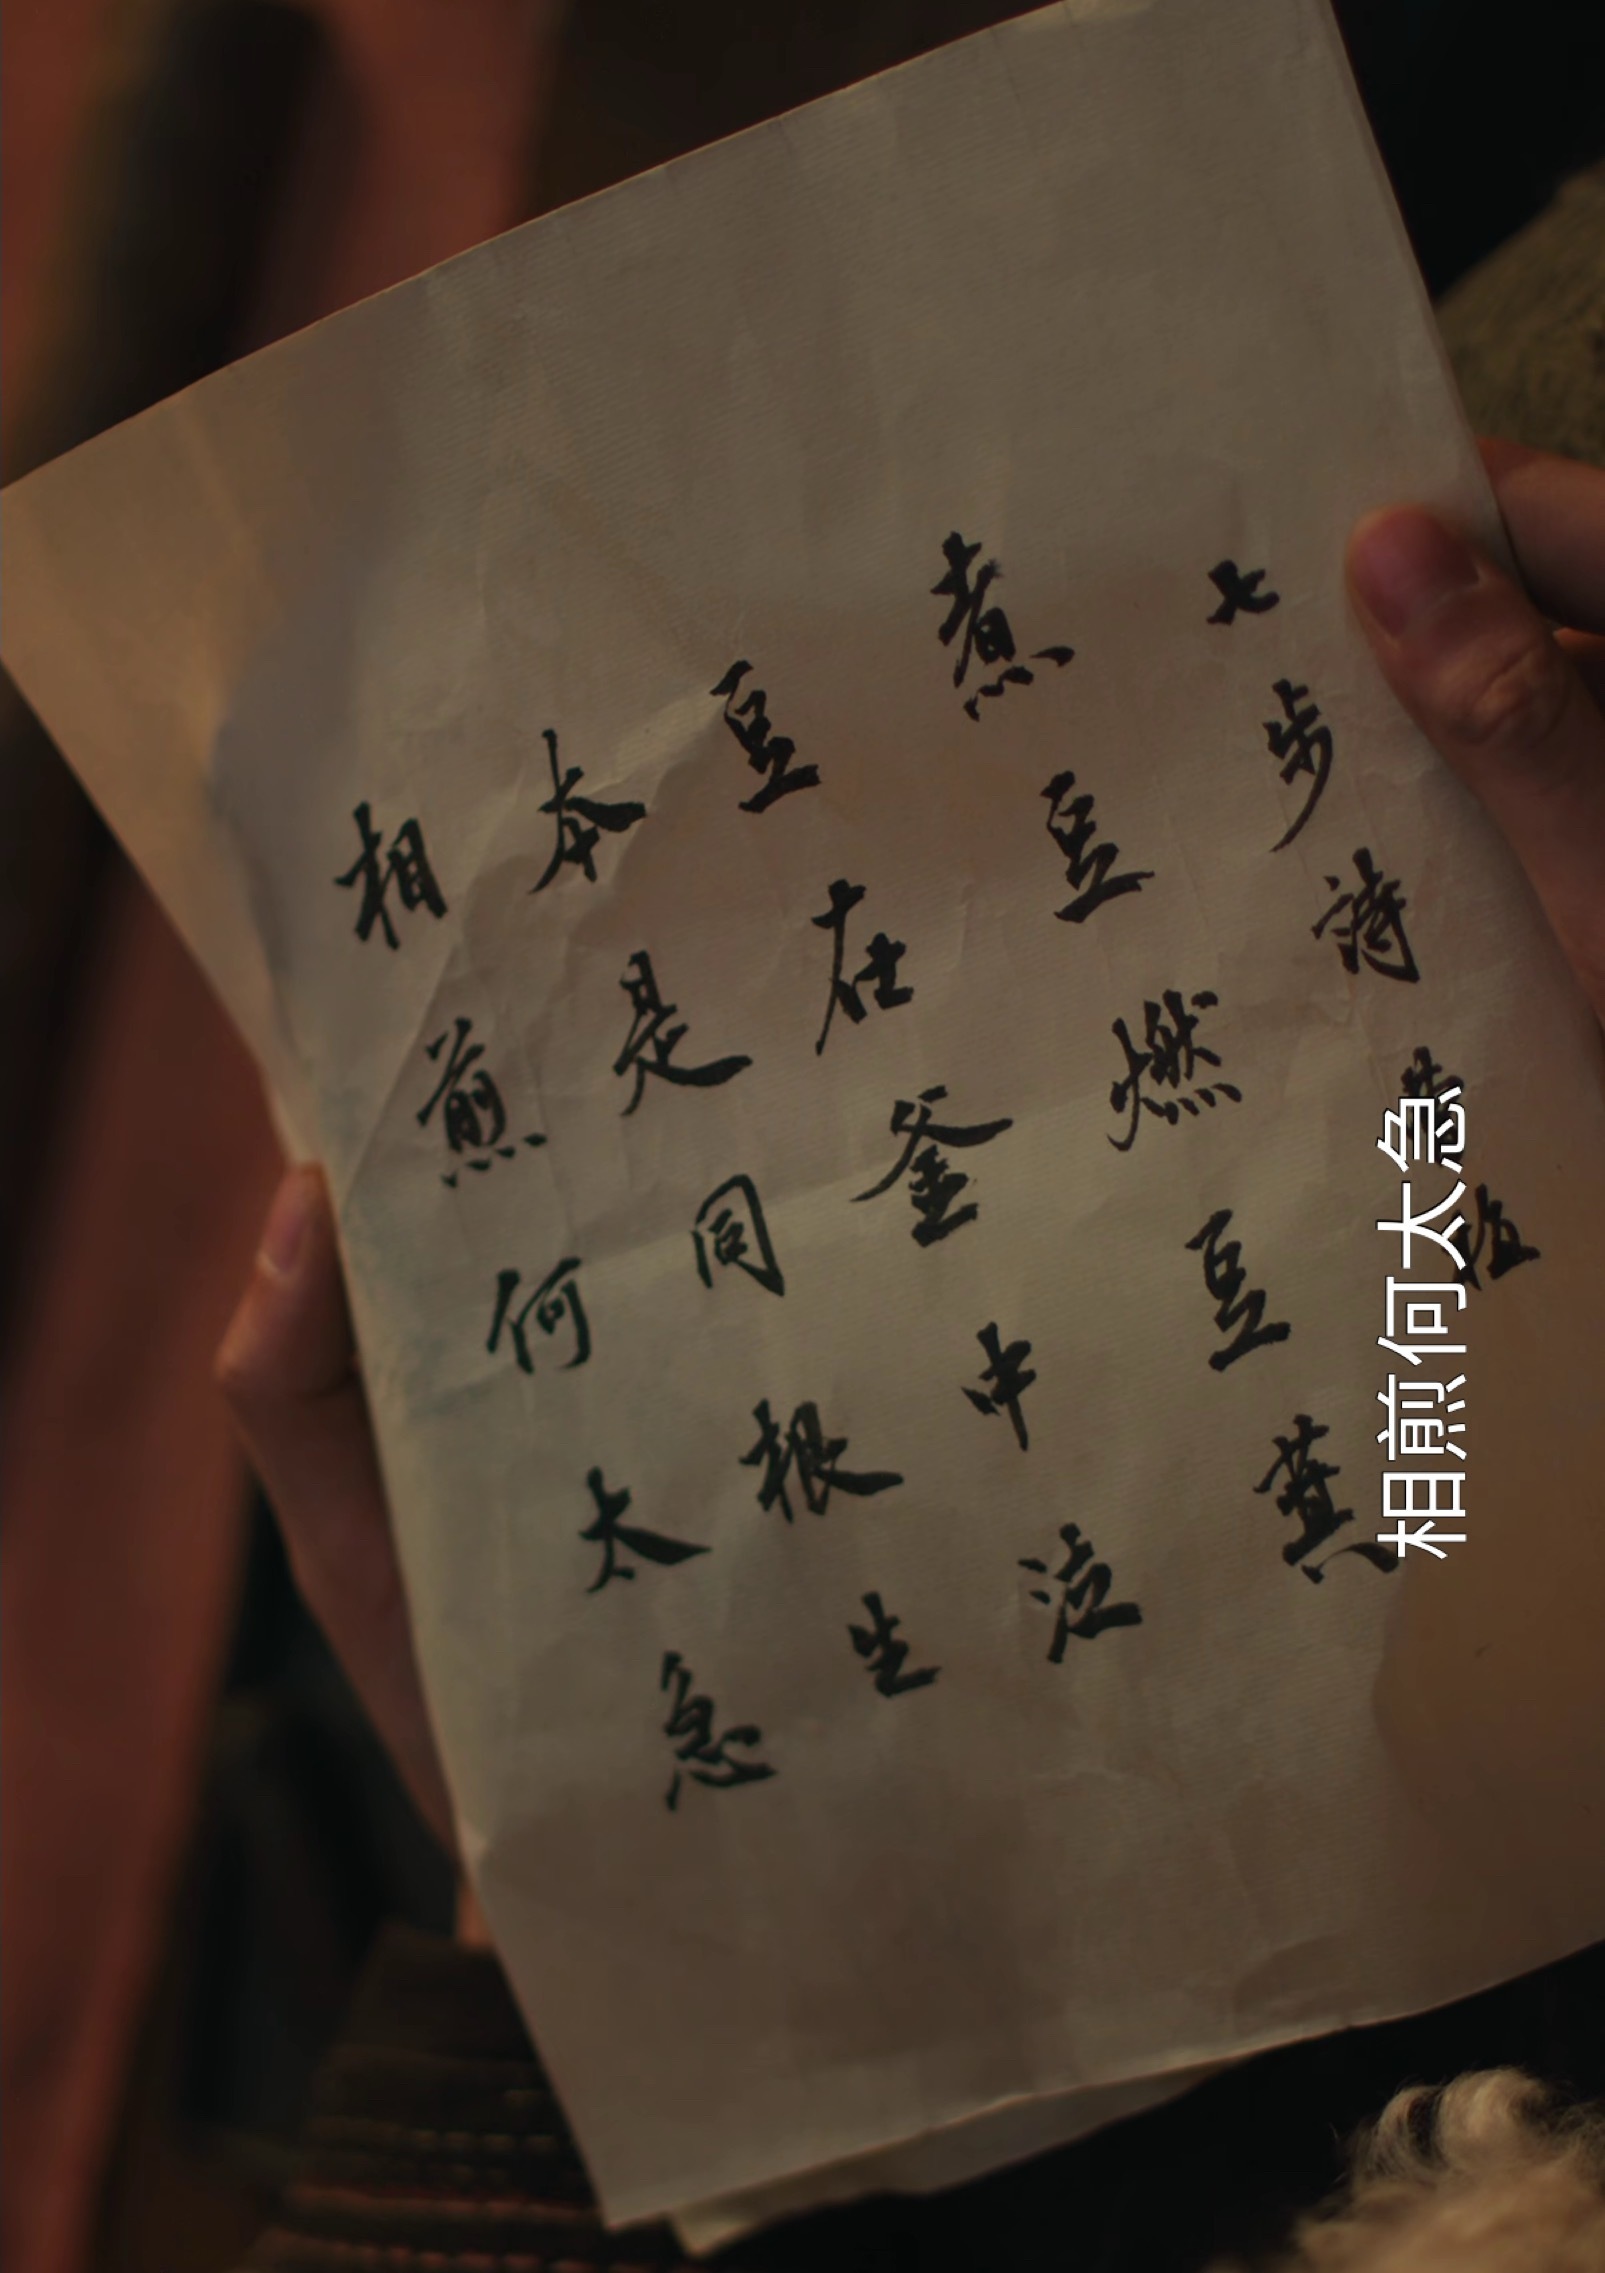 七步诗 曹植
煮豆燃豆萁
豆在釜中泣
本是同根生
相煎何太急
相煎何太急